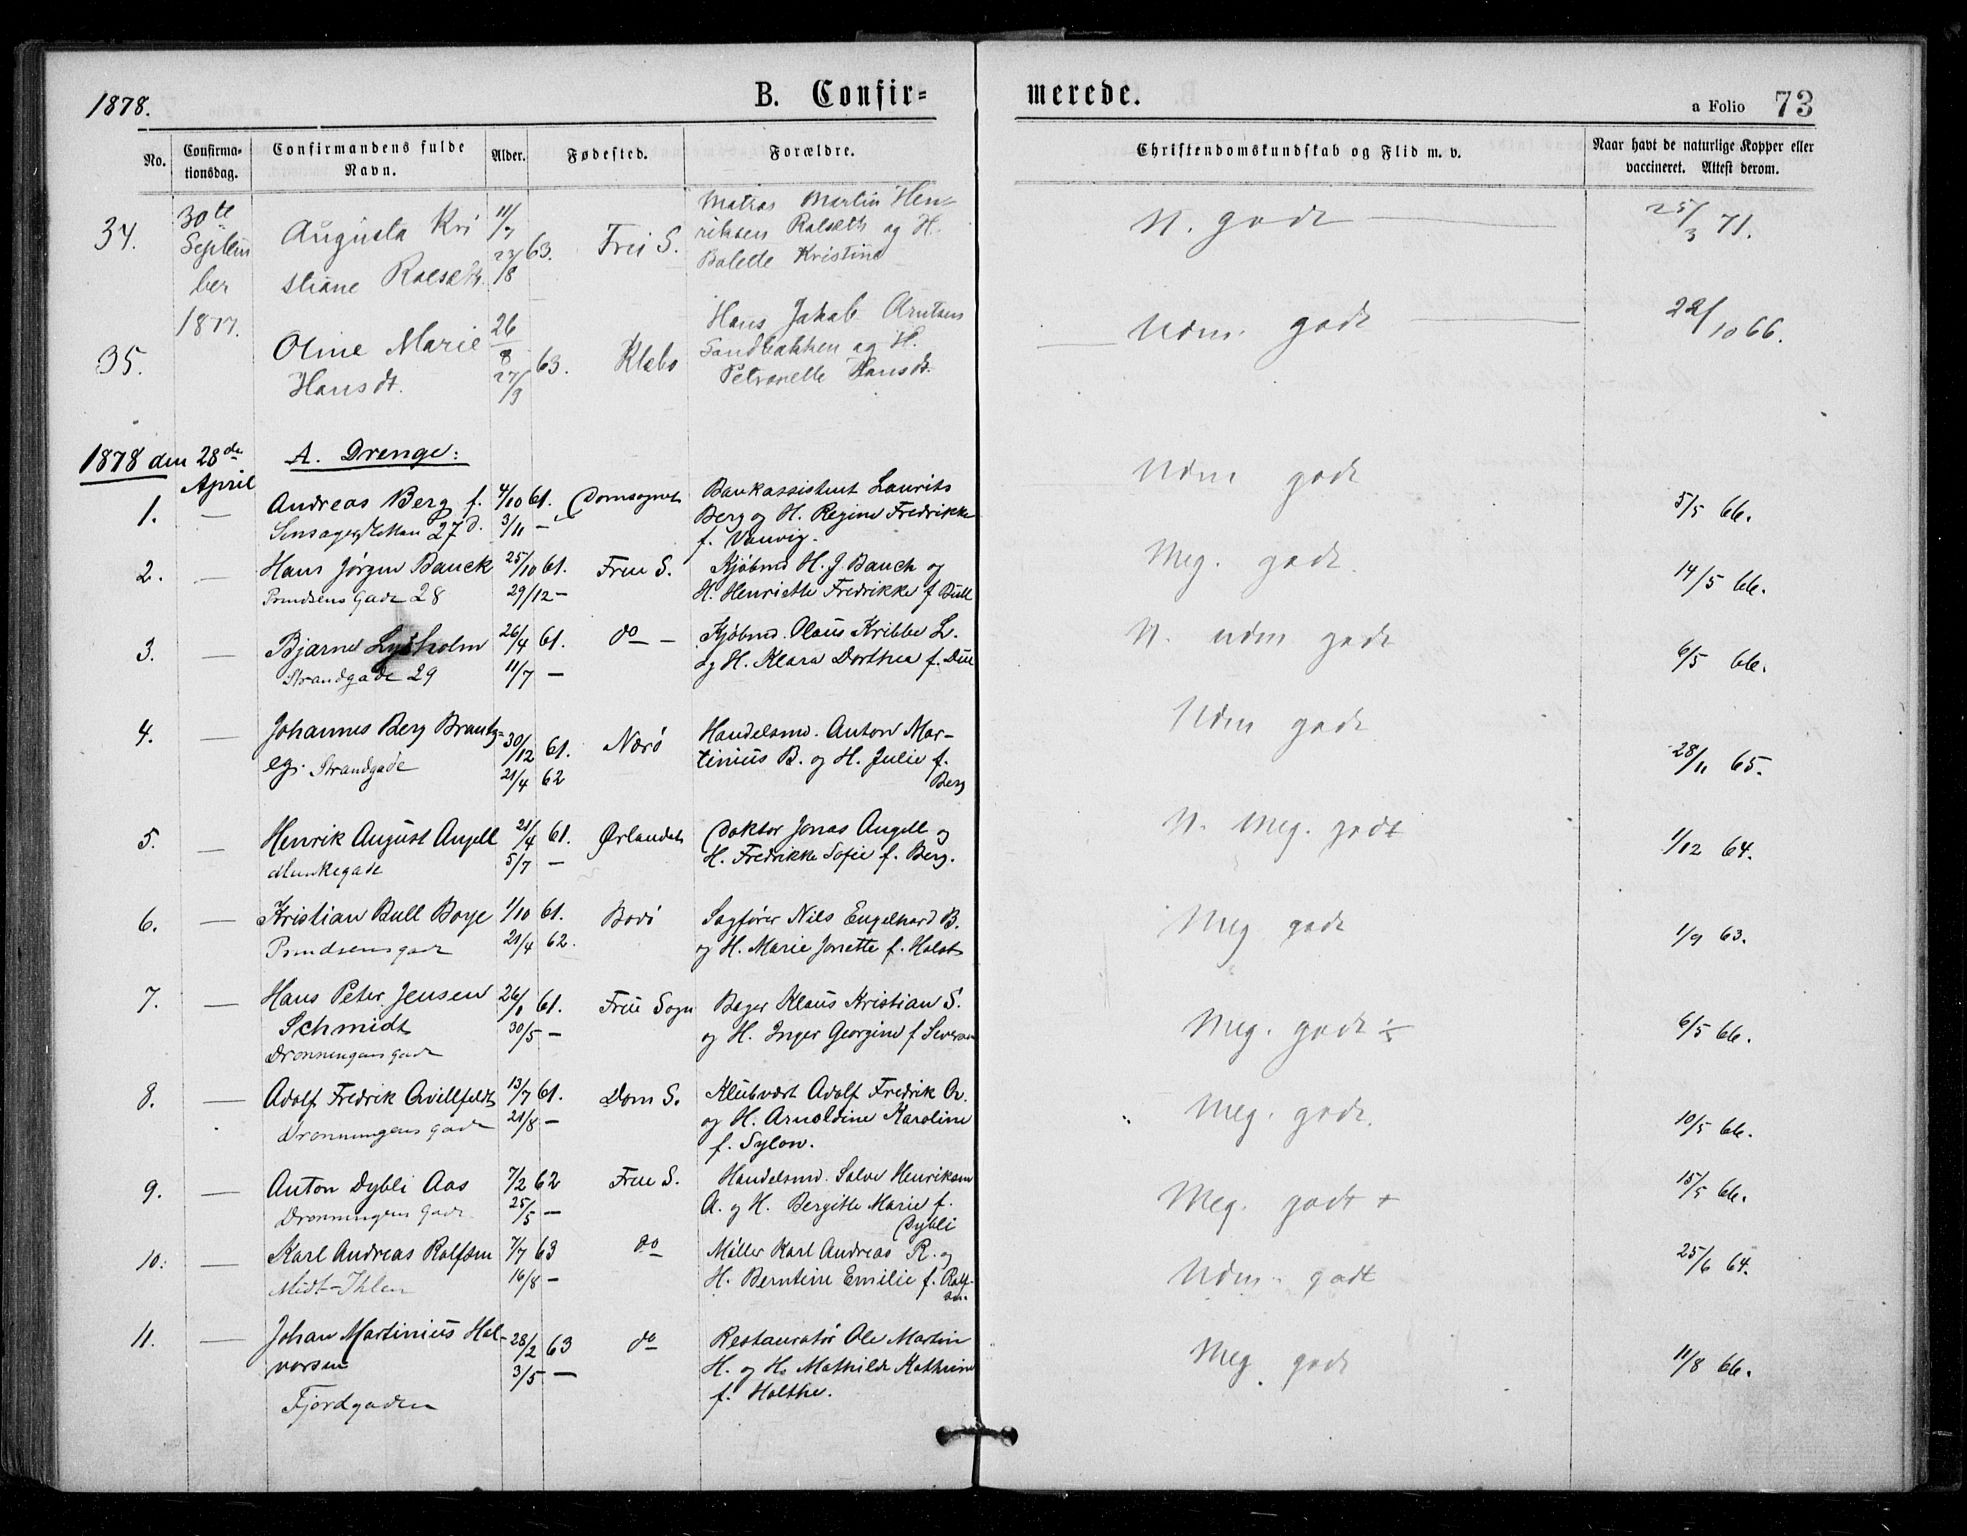 1878.
B. Confir=
merede.
a Folio 73
No.
Confirma-
tionsdag.
Confirmandens fulde
Navn.
Alder.
Fødested.
Forældre.
Christendomskundskab og Flid m. v.
Naar havt de naturlige Kopper eller
vaccineret. Attest derom.
34.
30te
Septem
ber
1877.
Augusta Kri
stiane
11/7
63.
27/8
Frü S.
Martin Hen-
riksen og H.
Kristine
N. godt
25/3 71.
35.
Oline Marie
Hansdt.
26/8
63.
27/9
Klæbo
Hans Jakob Arntsen
Sandbakken og H.
Petronelle Hansdt.
Udm. godt
22/10 66.
1878 den 28de
April
A. Drenge:
1.
Andreas Berg f.
27 d.
4/10 61.
3/11 —
Domsognet
Bankassistent Laurits
Berg og H. Regine Fredrikke
f. Vanvig.
Udm godt
5/5 66.
2.
Hans Jørgen Bauck
Prindsens Gade 28
25/10 61.
29/12 —
Frue S.
Kjøbmd H. J. Bauch og
H. Henriette Fredrikke f Bull
Meg. godt.
14/5 66.
3.
Bjarne Lysholm
Strandgade 29
26/4 61.
11/7 —
do —
Kjøbmd. Olaus Kribbe L.
og H. Klara Dorthea f. Due
N. udm godt
6/5 66.
4.
Johannes Berg Brantz=
eg. Strandgade
30/12 61.
21/4 62
Nærö
Handelsmd. Anton Mar-
tinius B. og H. Julie f.
Berg
Udm godt
28/11 65.
5.
Henrik August Angell
Munkegade
21/4 61.
5/7 —
Ørlandet
Doktor Jonas Angell og
H. Fredrikke Sofie f. Berg.
N. Meg. godt
1/12 64.
6.
Kristian Bull Boye
Prindsensgade
1/10 61.
21/4 62.
Bodö
Sagfører Nils Engelhard B.
og H. Marie Jonette f. Holst
Meg godt
1/9 63.
7.
Hans Peter Jensen
Schmidt
Dronningensgade
26/1 61.
30/5 —
Frue Sogn
Bager Klaus Kristian S.
og H. Inger Georgine f
Meg. godt ÷
6/5 66.
8.
Adolf Fredrik Qvillfeldt
Dronningensgade
13/7 61.
21/8 —
Dom S.
Klubvært Adolf Fredrik Qv.
og H. Arnoldine Karoline
f. Sylow.
Meg. godt.
10/5 66.
9.
Anton Dybli Aas
Dronningens Gade
7/2 62
25/5 —
Frue S.
Handelsmd. Salve Henriksen
A. og H. Bergitte Marie f.
Dybli
Meg. godt +
15/5 66.
10.
Karl Andreas Rolfsen
Midt-Ihlen
7/7 63
16/8 —
do
Møller Karl Andreas R. og
H. Berntine Emilie f. Rolf-
sen.
Udm. godt
25/6 64.
11.
Johan Martinius Hal-
vorsen
Fjordgaden
28/2 63
3/5 —
do
Restauratør Ole Martin
H. og H. Mathilde Kathrine
f. Holthe.
Meg godt
11/8 66.